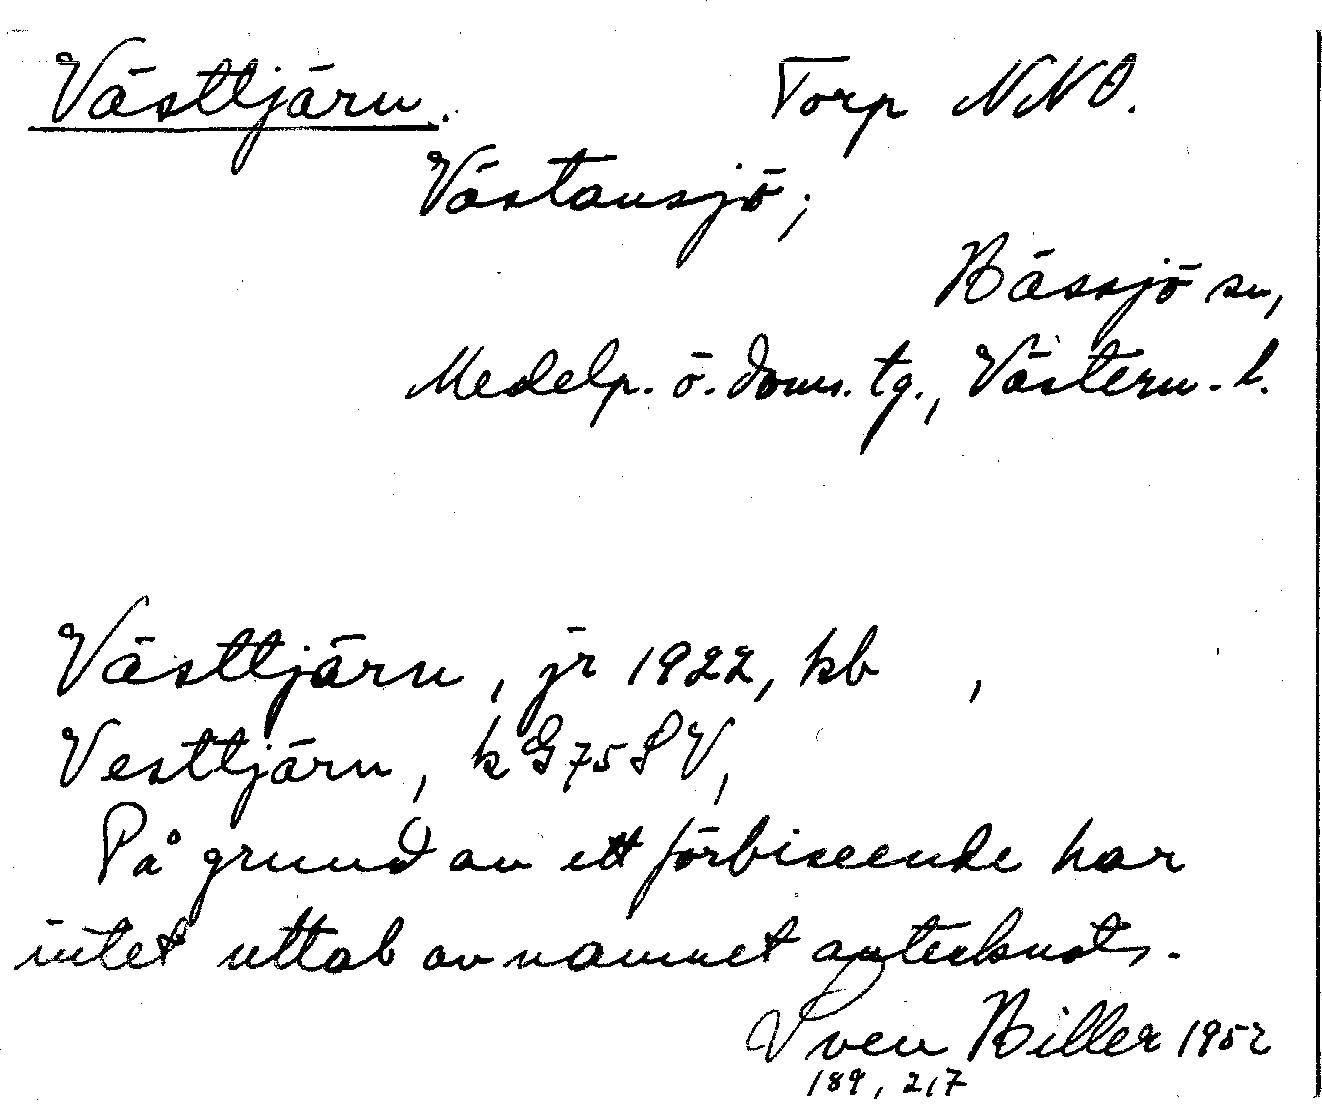 Västtjärn. Torp NNO.
Västansjö;
Bässjö sn,
Medelp. ö. doms. tg., Västern. l.
Västtjärn, jr 1922, kb ,
Vesttjärn, k G 75 S V,
På grund av ett förbiseende har
intet uttal av namnet antecknats.
Sven Biller 1952
189, 217